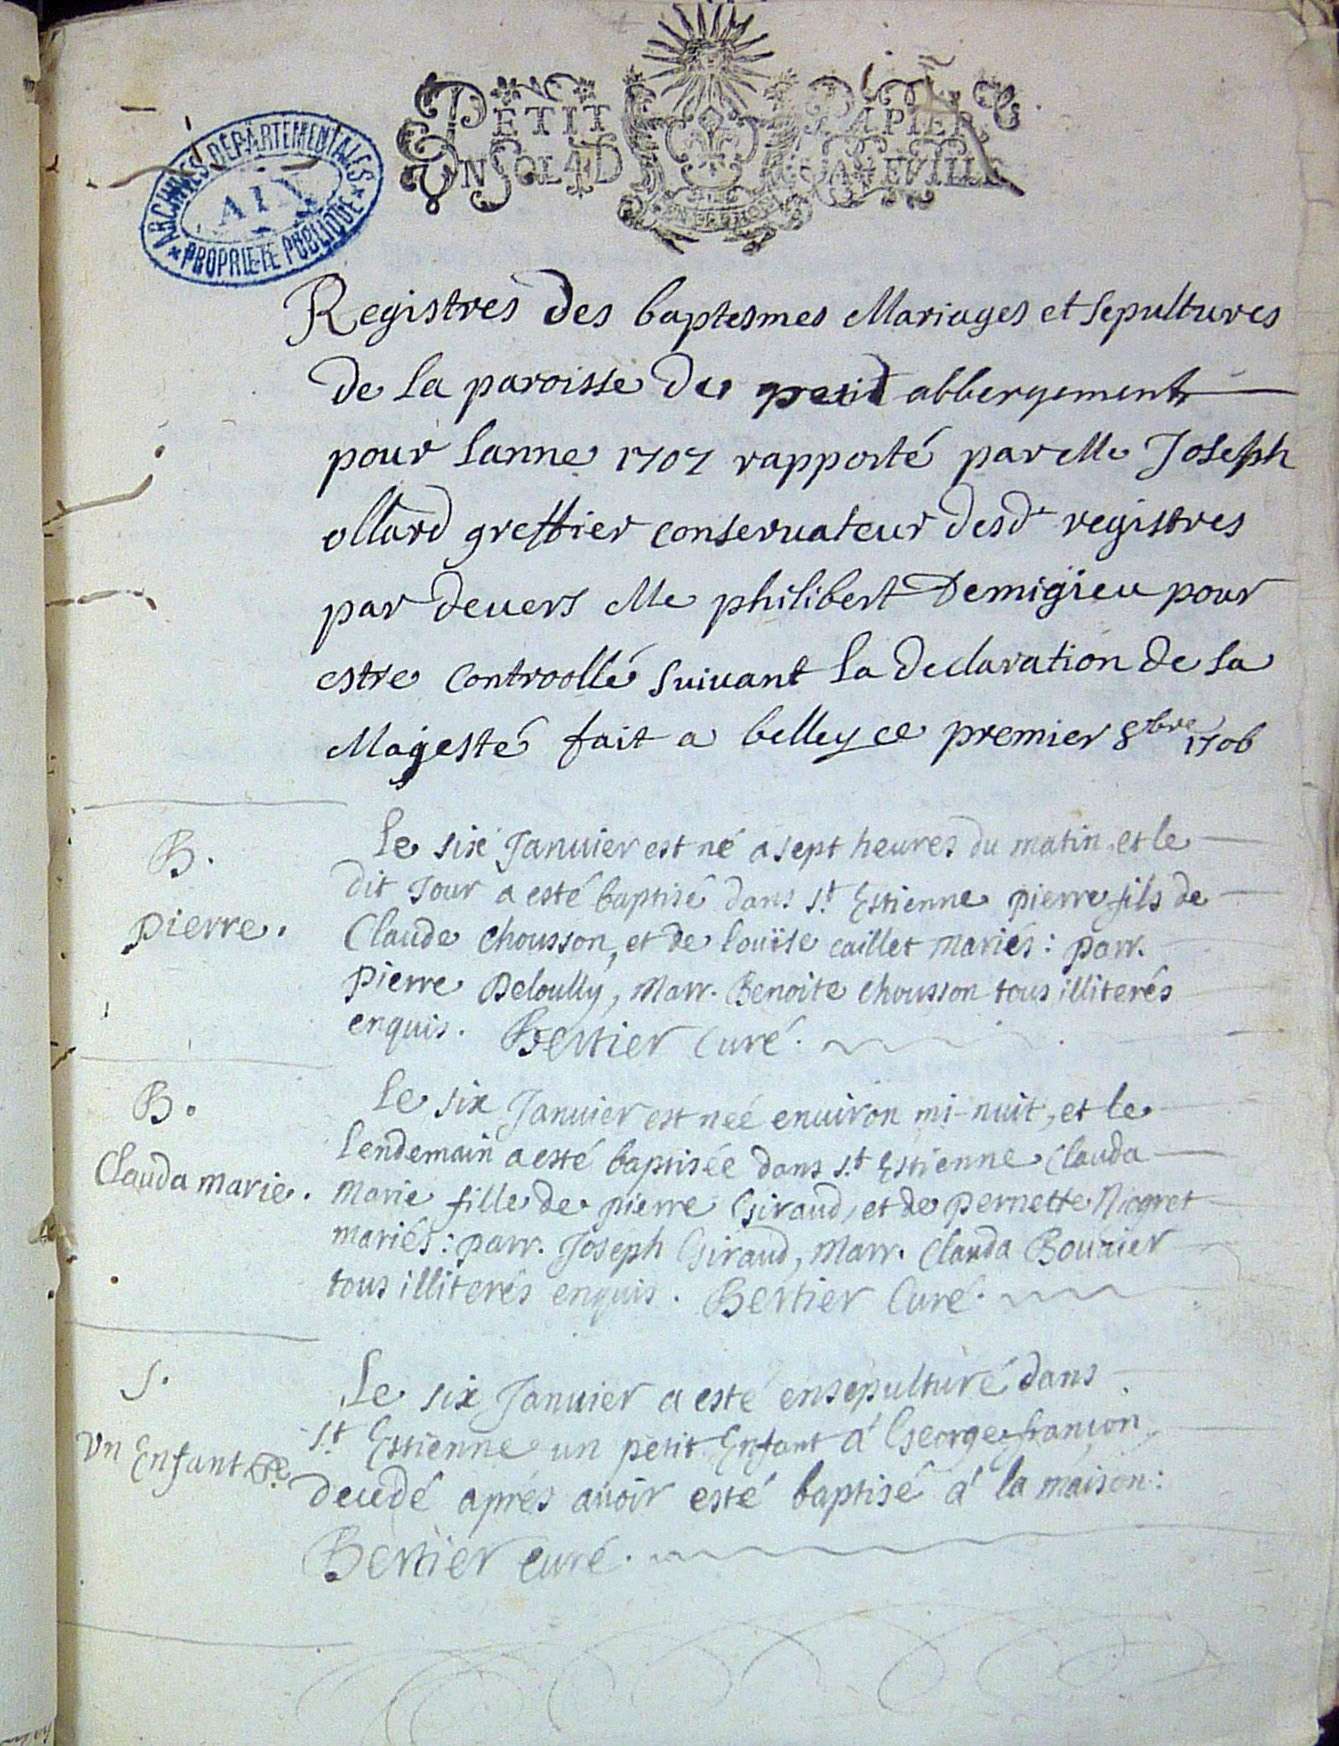 PETIT PAPIER
UN SOL 4 D LA FEUILLE
ARCHIVES DEPARTEMENTALES
AIN
PROPRIETE PUBLIQUE
Registres des baptesmes Mariages et sepultures
de la paroisse du petit abbergement
pour lanne 1707 rapporté par Me Joseph
ollard greffier conseruateur desd registres
par deuers Me philibert Demigieu pour
estre Controollé suiuant la declaration de sa
Majesté fait a belley ce premier 8bre 1706
B.
pierre.
Le six Januier est né a sept heures du matin et le
dit Jour a esté baptisé dans st Estienne pierre fils de
Claude chousson, et de louïse caillet mariés : parr.
pierre Deloully, Marr. Benoite chousson tous illiterés
enquis. Bertier Curé.
B.
Clauda marie.
Le six Januier est neé enuiron mi-nuit, et le
lendemain a esté baptisée dans st Estienne Clauda
Marie fille de pierre Giraud, et de pernette Nicgret
mariés : parr. Joseph Giraud, Marr. Clauda Bouuier
tous illiterés enquis. Bertier Curé.
S.
Vn Enfant
Le six Januier a esté ensepulturé dans
st Estienne un petit Enfant á George francon
decedé aprés auoir esté baptisé á la maison :
Bertier Curé.